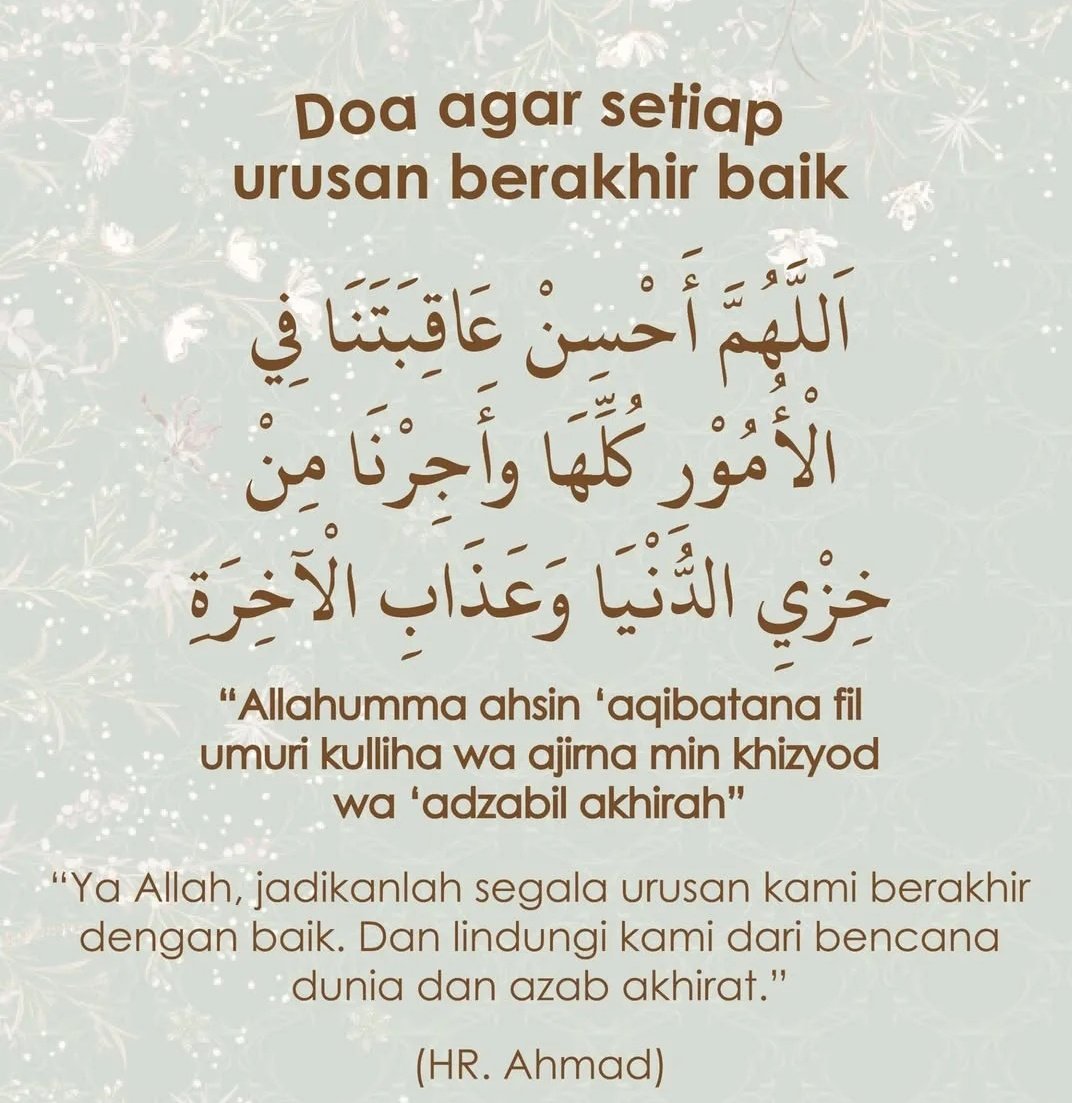 Doa agar setiap
urusan berakhir baik
اَللَّهُمَّ أَحْسِنْ عَاقِبَتَنَا فِي
الْأُمُوْرِ كُلِّهَا وأَجِرْنَا مِنْ
خِزْيِ الدُّنْيَا وَعَذَابِ الْآخِرَةِ
“Allahumma ahsin ‘aqibatana fil
umuri kulliha wa ajirna min khizyod
wa ‘adzabil akhirah”
“Ya Allah, jadikanlah segala urusan kami berakhir
dengan baik. Dan lindungi kami dari bencana
dunia dan azab akhirat.”
(HR. Ahmad)